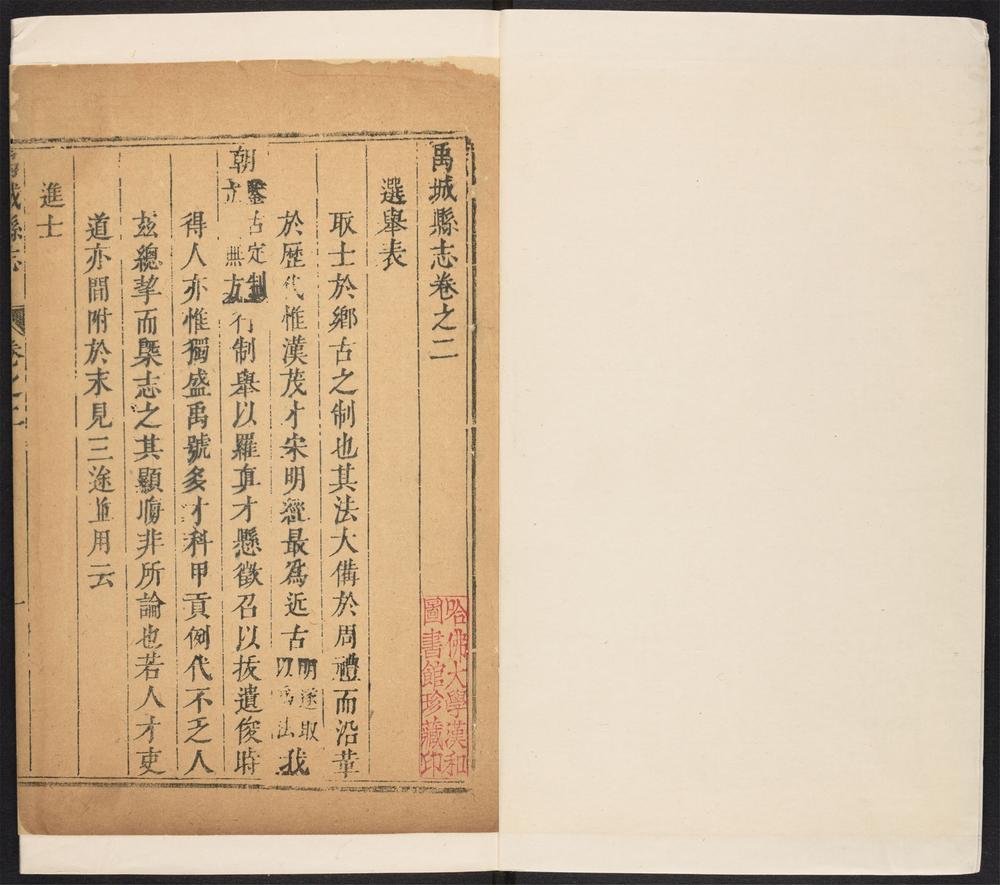 禹城縣志卷之二
選舉表
取士於鄉古之制也其法大備於周禮而沿革
於歷代惟漢茂才宋明經最爲近古明遂取以爲法我
朝鑒古定制立無方行制舉以羅真才懸徵召以拔遺俊時
得人亦惟獨盛禹號多才科甲貢例代不乏人
玆總挈而槩志之其顯晦非所論也若人才吏
道亦間附於末見三途並用云
進士
城縣志
卷之二
一
哈佛大學漢和
圖書館珍藏印